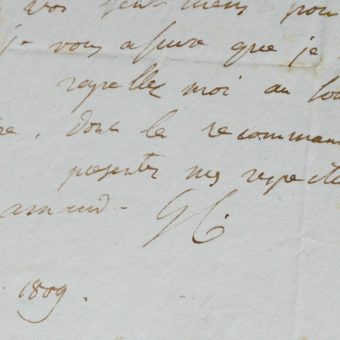 vos sentimens pour
je vous assure que je
rapellez moi au sou
re, dont le recomman
presenter mes respects
amand. G C.
1809.